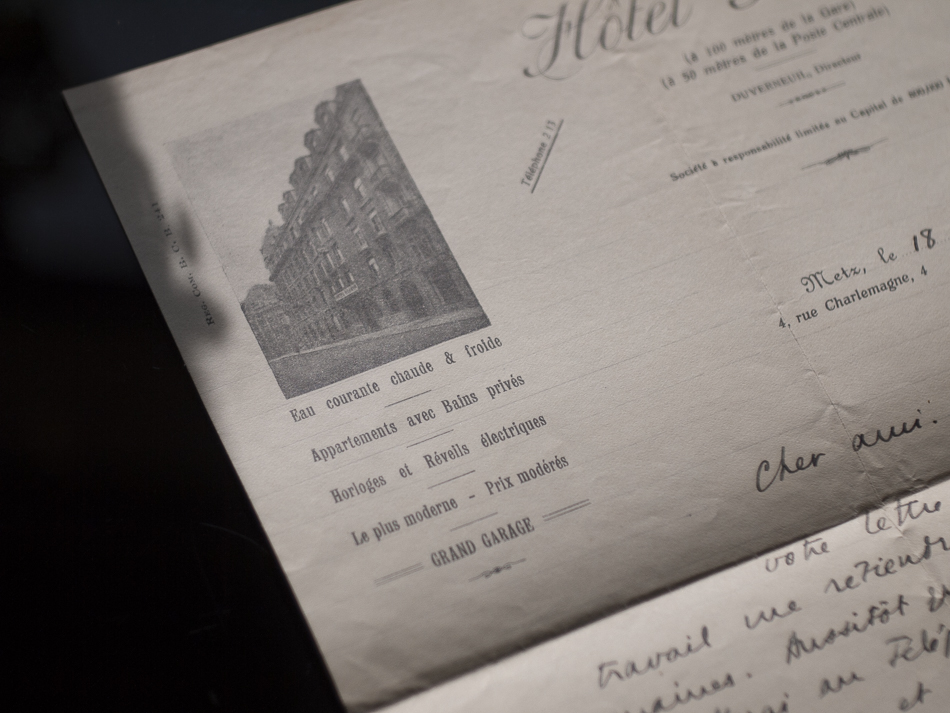 Hôtel
(à 100 mètres de la Gare)
(à 50 mètres de la Poste Centrale)
DUVERNEUIL, Directeur
Société à responsabilité limitée au Capital de
Téléphone 213
Metz, le 18
4, rue Charlemagne, 4
Eau courante chaude & froide
Appartements avec Bains privés
Horloges et Réveils électriques
Le plus moderne - Prix modérés
GRAND GARAGE
Cher ami:
votre lettre
travail me
Aussitôt
au
et